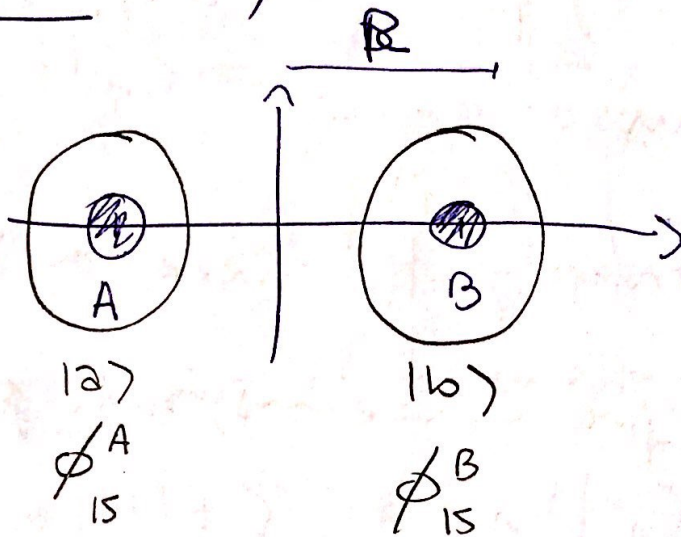 R
A B
|a> |b>
ϕ^A_1S ϕ^B_1S